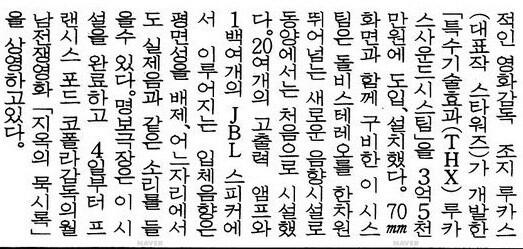 적인 영화감독 조지 루카스
(대표작 스타워즈)가 개발한
「특수기술효과(THX) 루카
스사운드시스팀」을 3억5천
만원에 도입, 설치했다. 70㎜
화면과 함께 구비한 이 시스
팀은 돌비스테레오를 한차원
뛰어넘는 새로운 음향시설로
동양에서는 처음으로 시설했
다. 20여개의 고출력 앰프와
1백여개의 JBL 스피커에
서 이루어지는 입체음향은
평면성을 배제, 어느자리에서
도 실제음과 같은 소리를 들
을수 있다. 명보극장은 이 시
설을 완료하고 4일부터 프
랜시스 포드 코폴라감독의 월
남전쟁영화 「지옥의 묵시록」
을 상영하고있다.
NAVER
NAVER